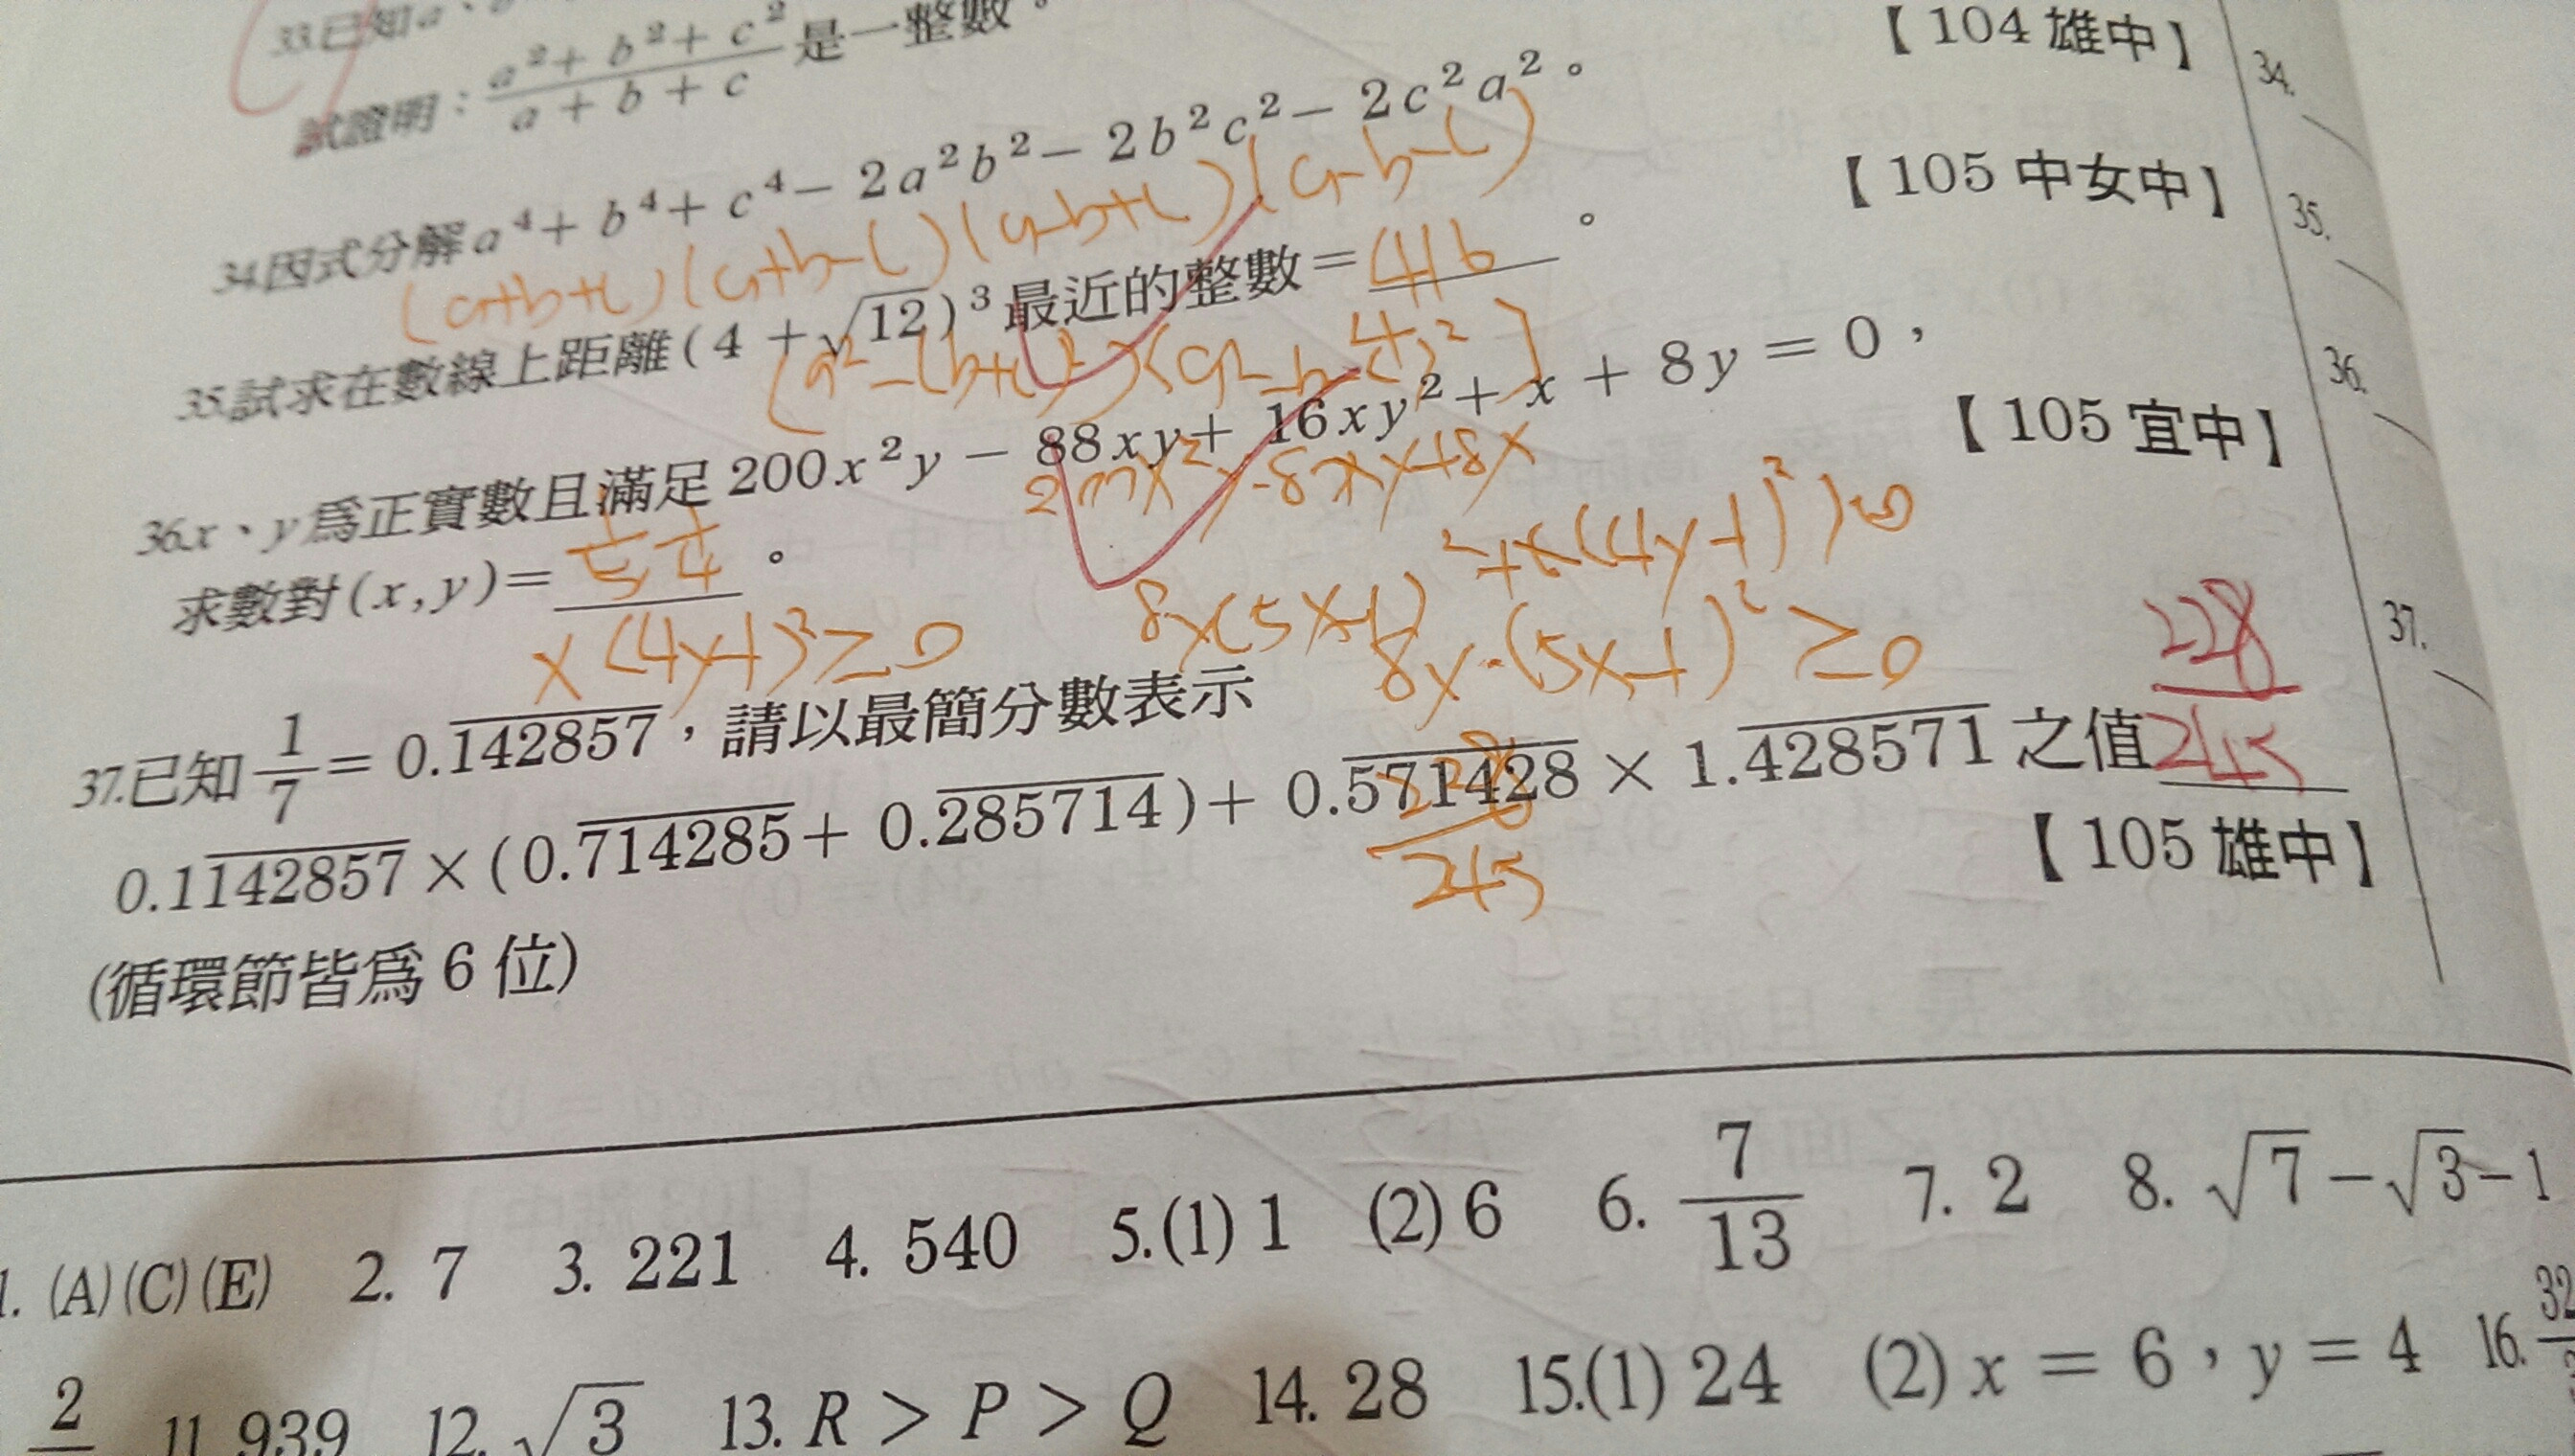 33.已知a、
試證明：\frac{a²+b²+c²}{a+b+c}是一整數。
【104 雄中】
34.
34.因式分解a⁴+b⁴+c⁴−2a²b²−2b²c²−2c²a²。
(a+b+c)(a+b-c)(a-b+c)(a-b-c)
【105 中女中】
35.
35.試求在數線上距離(4+√12)³最近的整數=416。
36.
36.x、y為正實數且滿足200x²y−88xy+16xy²+x+8y=0，
【105 宜中】
求數對(x,y)=\frac{1}{5},\frac{1}{4}。
x(4y-1)²≥0
8y(5x-1)²+x(4y-1)²
8y·(5x-1)²≥0
37.
37.已知\frac{1}{7}=0.\overline{142857}，請以最簡分數表示
0.1\overline{142857}×(0.\overline{714285}+0.\overline{285714})+0.\overline{571428}×1.\overline{428571}之值\frac{228}{245}
\frac{228}{245}
【105 雄中】
(循環節皆為6位)
1. (A)(C)(E) 2. 7 3. 221 4. 540 5.(1) 1 (2) 6 6. \frac{7}{13} 7. 2 8. √7−√3−1
11. 939 12. √3 13. R > P > Q 14. 28 15.(1) 24 (2) x = 6，y = 4 16.